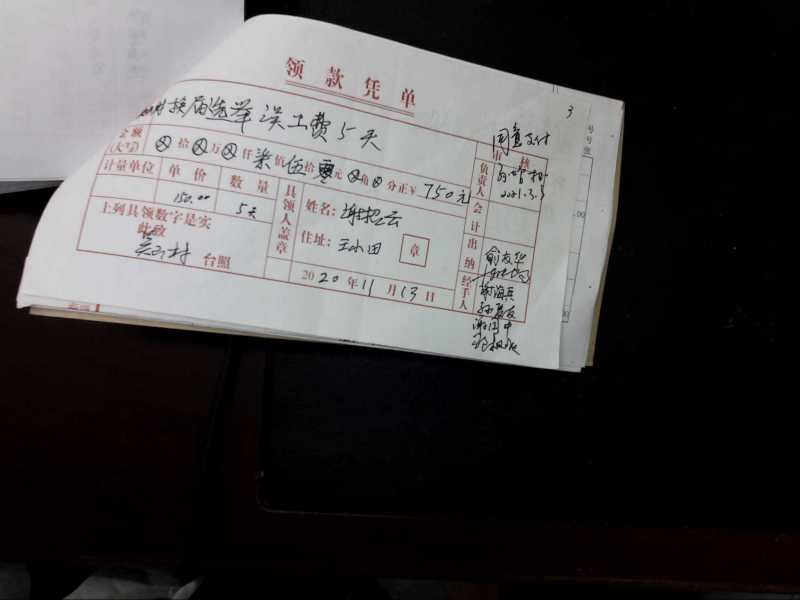 领款凭单
村换届选举误工费5天
金额(大写) 拾 万 仟 柒 佰 伍 拾 零 元 角 分 正¥ 750元
计量单位 单价 数量
150.00 5天
上列具领数字是实
此致
村 台照
具领人盖章
姓名:谢招云
住址:王水田 章
2020年11月13日
同意支付
审核
负责人
2021.3.3
会计
出纳
俞友华
经手人
3
号